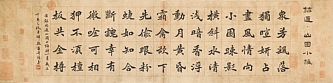 林逋 山園小梅
衆芳搖落
獨暄妍占
盡風情向
小園疏影
橫斜水清
淺暗香浮
動月黃昏
霜禽欲下
先偷眼粉
蝶如知合
斷魂幸有
微吟可相
狎不須檀
板共金樽